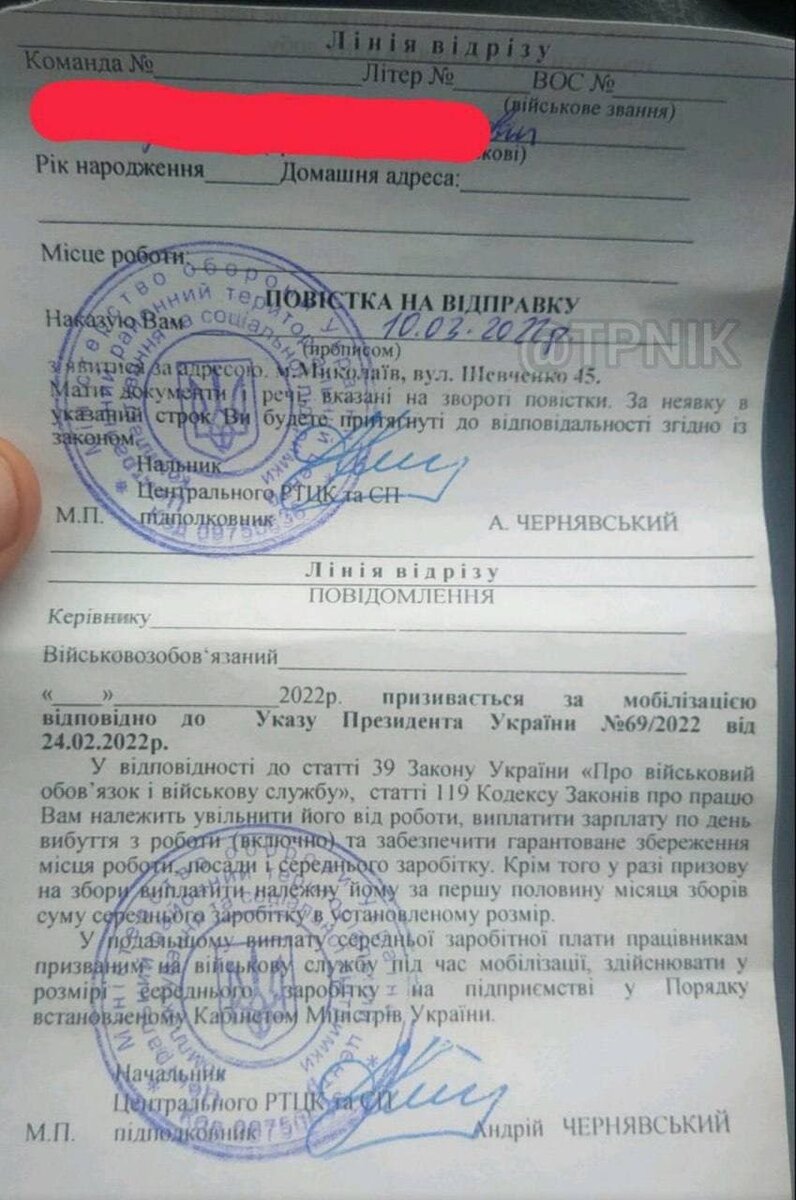 Лінія відрізу
Команда №________ Літер №______ ВОС №________
(військове звання)
кові)
Рік народження______Домашня адреса:
Місце роботи:
ПОВІСТКА НА ВІДПРАВКУ
Наказую Вам 10.03.2022р
(прописом)
@TPNIK
з'явитися за адресою. м.Миколаїв, вул. Шевченко 45.
Мати документи і речі, вказані на звороті повістки. За неявку в
указаний строк Ви будете притягнуті до відповідальності згідно із
законом.
Нальник
Центрального РТЦК та СП
М.П. підполковник А. ЧЕРНЯВСЬКИЙ
Лінія відрізу
ПОВІДОМЛЕННЯ
Керівнику
Військовозобов'язаний
«____»______________2022р. призивається за мобілізацією
відповідно до Указу Президента України №69/2022 від
24.02.2022р.
У відповідності до статті 39 Закону України «Про військовий
обов'язок і військову службу», статті 119 Кодексу Законів про працю
Вам належить увільнити його від роботи, виплатити зарплату по день
вибуття з роботи (включно) та забезпечити гарантоване збереження
місця роботи, посади і середнього заробітку. Крім того у разі призову
на збори виплатити належну йому за першу половину місяця зборів
суму середнього заробітку в установленому розмір.
У подальшому виплату середньої заробітної плати працівникам
призваним на військову службу під час мобілізації, здійснювати у
розмірі середнього заробітку на підприємстві у Порядку
встановленому Кабінетом Міністрів України.
Начальник
Центрального РТЦК та СП
М.П. підполковник Андрій ЧЕРНЯВСЬКИЙ